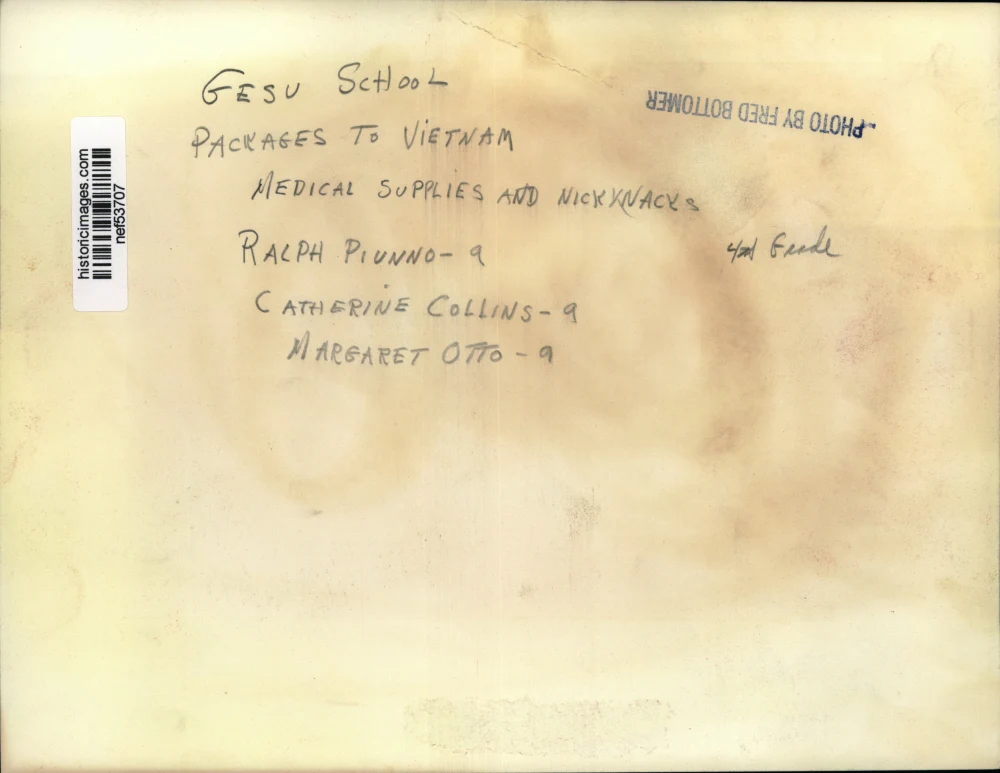 GESU SCHOOL
PHOTO BY FRED BOTTOMER
PACKAGES TO VIETNAM
MEDICAL SUPPLIES AND NICKKNACKS
RALPH PIUNNO - 9
4th Grade
CATHERINE COLLINS - 9
MARGARET OTTO - 9
historicimages.com
nef53707